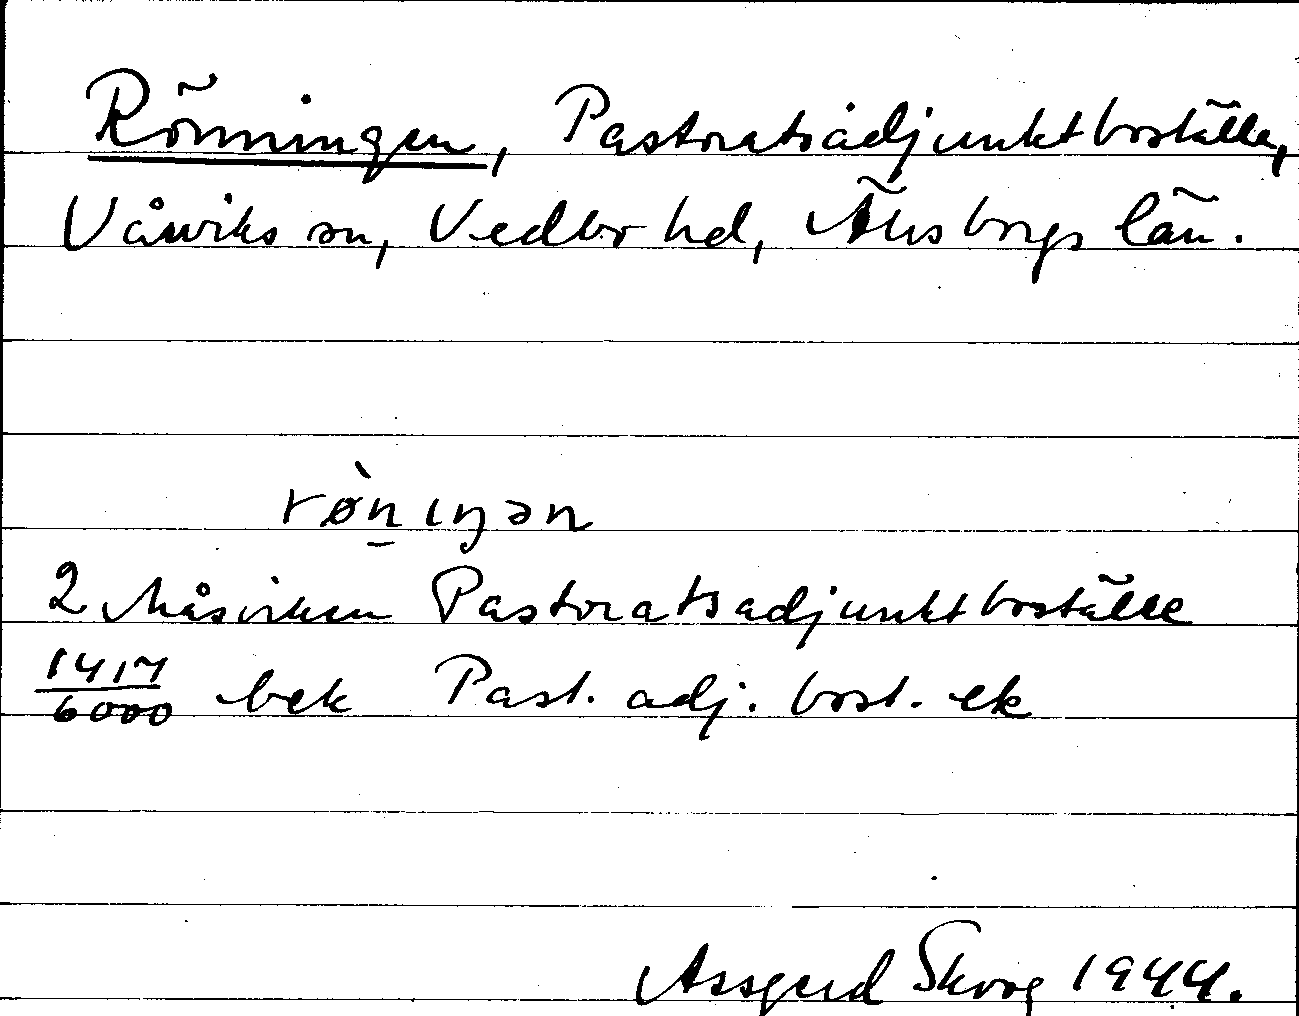 Rönningen, Pastoratsadjunktboställe,
Vårviks sn, Vedbo hd, Älvsborgs län.
rø̀n̲ ıŋən
2 Måsviken Pastoratsadjunktboställe
1417/6000 bek Past. adj. bost. ek
Assgerd Skoog 1944.